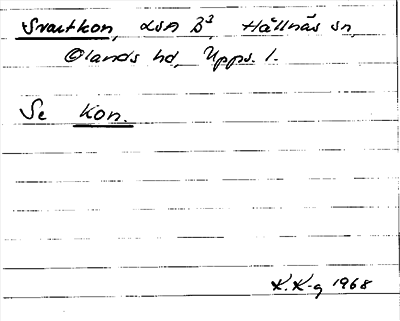 Svartkon, LSA B³, Hållnäs sn,
Olands hd, Upps. l.
Se Kon.
K.K-g 1968